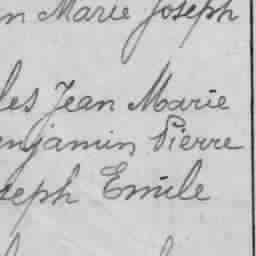 n Marie Joseph
les Jean Marie
enjamin Pierre
seph Emile